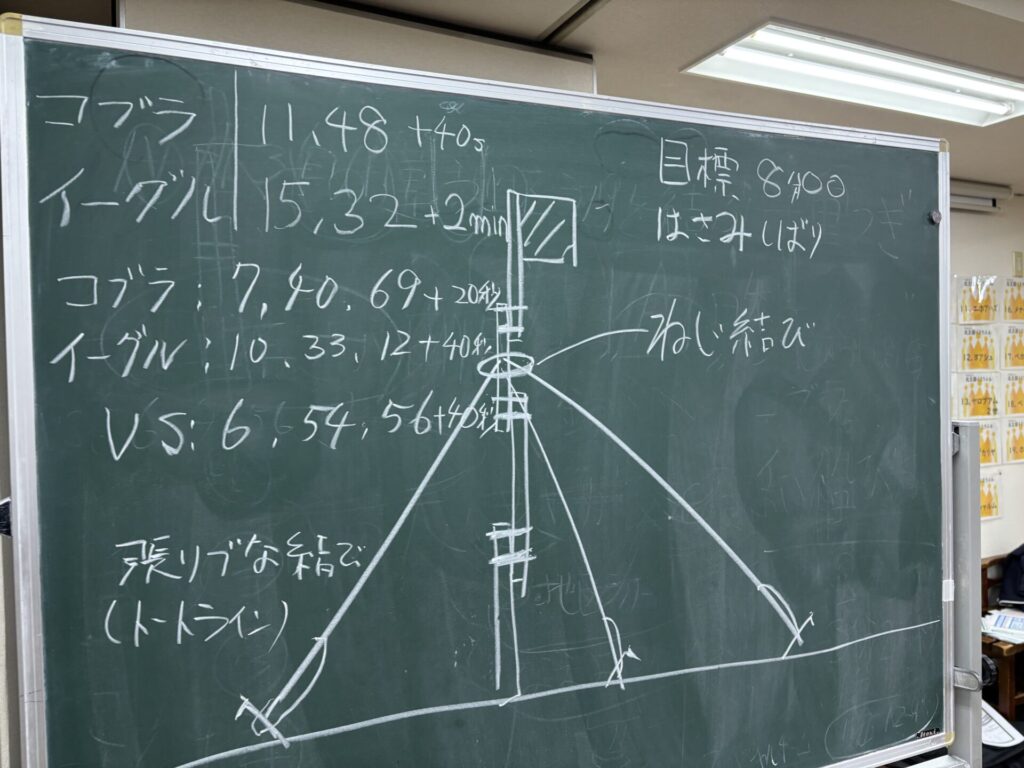 コブラ 11,48 +40s
イーグル 15,32 +2min
コブラ: 7,40,69+20秒
イーグル:10,33,12+40秒
VS:6,54,56+40秒
張リブな結び
(トートライン)
目標、8分00
はさみしばり
ねじ結び